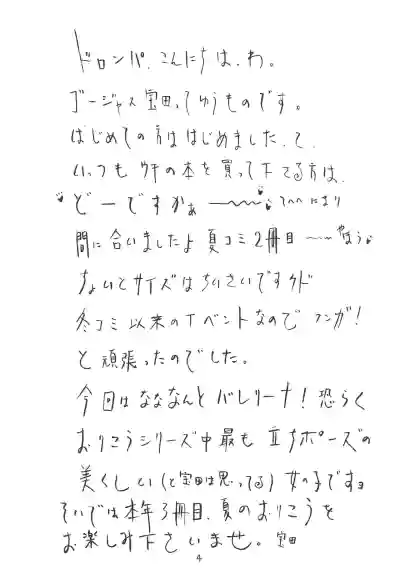 ドロンパ、こんにちは、わ。
ゴージャス宝田ってゆうものです。
はじめての方ははじめました、で、
いっつも ウチの本を買って下てる方は、
どーですかぁ 〜〜〜 てへへ にまり
間に合いましたよ夏コミ2冊目 〜〜 やほぅ
ちょいとサイズはちいさいですケド
冬コミ以来のイベントなので フンガ!
と頑張ったのでした。
今回はなななんと バレリーナ! 恐らく
おりこうシリーズ中最も 立ちポーズの
美くしい(と宝田は思ってる) 女の子ですヨ
そいでは本年3冊目、夏のおりこうを
お楽しみ下さいませ。 宝田
4